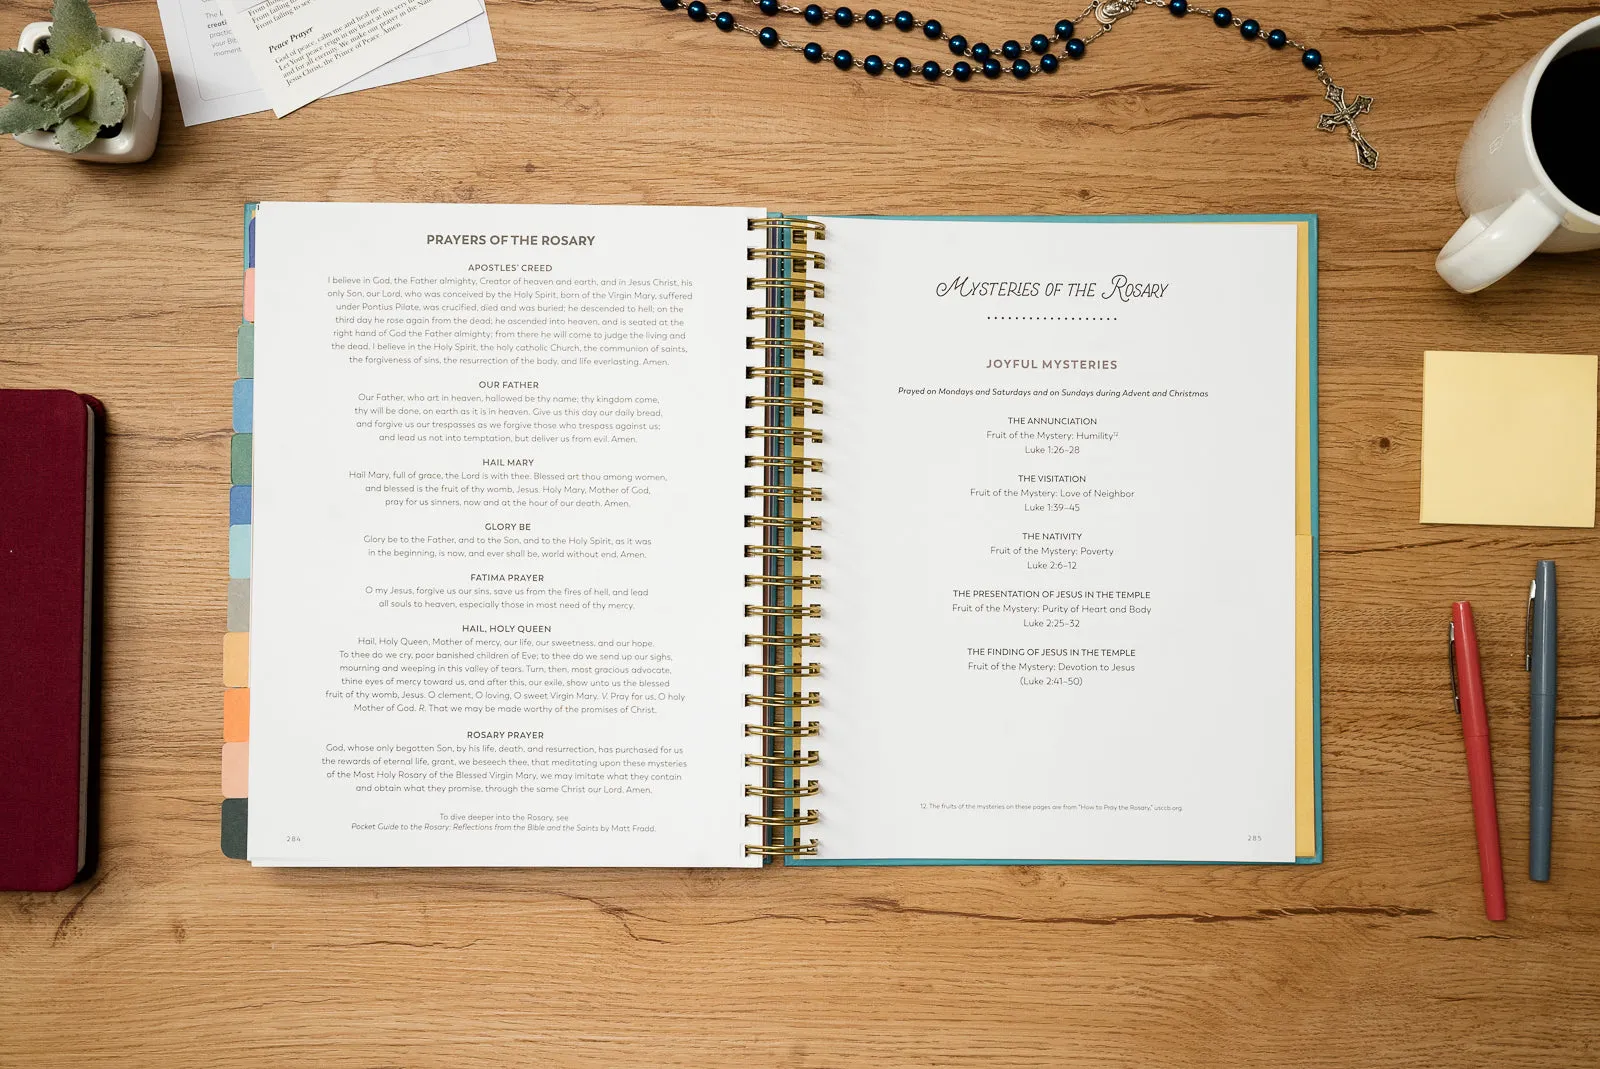 The
creati
practic
your Bit
moment
From thou
From failing
From failing to see
Peace Prayer
God of peace, calm me and heal me.
Let Your peace reign in my heart at this very
and for all eternity. We make our prayer in the Na
Jesus Christ, the Prince of Peace. Amen.
PRAYERS OF THE ROSARY
APOSTLES' CREED
I believe in God, the Father almighty, Creator of heaven and earth, and in Jesus Christ, his
only Son, our Lord, who was conceived by the Holy Spirit, born of the Virgin Mary, suffered
under Pontius Pilate, was crucified, died and was buried; he descended to hell; on the
third day he rose again from the dead; he ascended into heaven, and is seated at the
right hand of God the Father almighty; from there he will come to judge the living and
the dead. I believe in the Holy Spirit, the holy catholic Church, the communion of saints,
the forgiveness of sins, the resurrection of the body, and life everlasting. Amen.
OUR FATHER
Our Father, who art in heaven, hallowed be thy name; thy kingdom come,
thy will be done, on earth as it is in heaven. Give us this day our daily bread,
and forgive us our trespasses as we forgive those who trespass against us;
and lead us not into temptation, but deliver us from evil. Amen.
HAIL MARY
Hail Mary, full of grace, the Lord is with thee. Blessed art thou among women,
and blessed is the fruit of thy womb, Jesus. Holy Mary, Mother of God,
pray for us sinners, now and at the hour of our death. Amen.
GLORY BE
Glory be to the Father, and to the Son, and to the Holy Spirit, as it was
in the beginning, is now, and ever shall be, world without end. Amen.
FATIMA PRAYER
O my Jesus, forgive us our sins, save us from the fires of hell, and lead
all souls to heaven, especially those in most need of thy mercy.
HAIL, HOLY QUEEN
Hail, Holy Queen, Mother of mercy, our life, our sweetness, and our hope.
To thee do we cry, poor banished children of Eve; to thee do we send up our sighs,
mourning and weeping in this valley of tears. Turn, then, most gracious advocate,
thine eyes of mercy toward us, and after this, our exile, show unto us the blessed
fruit of thy womb, Jesus. O clement, O loving, O sweet Virgin Mary. V. Pray for us, O holy
Mother of God. R. That we may be made worthy of the promises of Christ.
ROSARY PRAYER
God, whose only begotten Son, by his life, death, and resurrection, has purchased for us
the rewards of eternal life, grant, we beseech thee, that meditating upon these mysteries
of the Most Holy Rosary of the Blessed Virgin Mary, we may imitate what they contain
and obtain what they promise, through the same Christ our Lord. Amen.
To dive deeper into the Rosary, see
Pocket Guide to the Rosary: Reflections from the Bible and the Saints by Matt Fradd.
284
MYSTERIES OF THE ROSARY
JOYFUL MYSTERIES
Prayed on Mondays and Saturdays and on Sundays during Advent and Christmas
THE ANNUNCIATION
Fruit of the Mystery: Humility¹²
Luke 1:26–28
THE VISITATION
Fruit of the Mystery: Love of Neighbor
Luke 1:39–45
THE NATIVITY
Fruit of the Mystery: Poverty
Luke 2:6–12
THE PRESENTATION OF JESUS IN THE TEMPLE
Fruit of the Mystery: Purity of Heart and Body
Luke 2:25–32
THE FINDING OF JESUS IN THE TEMPLE
Fruit of the Mystery: Devotion to Jesus
(Luke 2:41–50)
12. The fruits of the mysteries on these pages are from "How to Pray the Rosary," usccb.org.
285